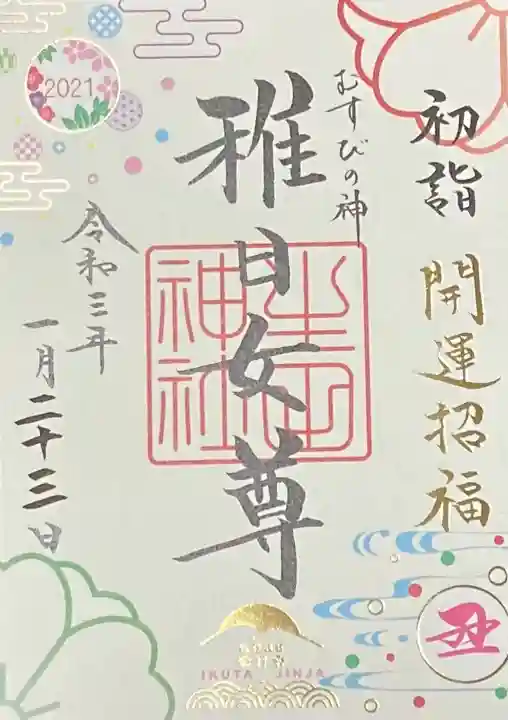 初詣 開運招福
むすびの神
稚日女尊
生田神社
令和三年
一月二十三日
2021
丑
IKUTA JINJA